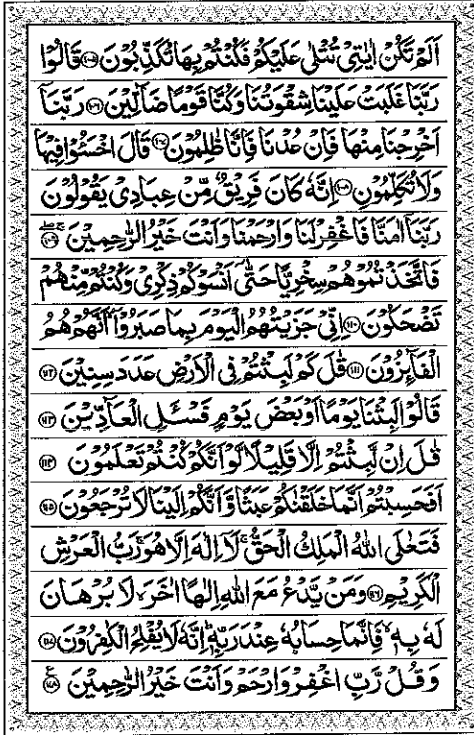 اَلَمْ تَكُنْ اٰيٰتِىْ تُتْلٰى عَلَيْكُمْ فَكُنْتُمْ بِهَا تُكَذِّبُوْنَ ۝۱۰۵ قَالُوْا
رَبَّنَا غَلَبَتْ عَلَيْنَا شِقْوَتُنَا وَكُنَّا قَوْمًا ضَآلِّيْنَ ۝۱۰۶ رَبَّنَاۤ
اَخْرِجْنَا مِنْهَا فَاِنْ عُدْنَا فَاِنَّا ظٰلِمُوْنَ ۝۱۰۷ قَالَ اخْسَـُٔوْا فِيْهَا
وَلَا تُكَلِّمُوْنِ ۝۱۰۸ اِنَّهٗ كَانَ فَرِيْقٌ مِّنْ عِبَادِىْ يَقُوْلُوْنَ
رَبَّنَاۤ اٰمَنَّا فَاغْفِرْ لَنَا وَارْحَمْنَا وَاَنْتَ خَيْرُ الرّٰحِمِيْنَ ۝۱۰۹
فَاتَّخَذْتُمُوْهُمْ سِخْرِيًّا حَتّٰىۤ اَنْسَوْكُمْ ذِكْرِىْ وَكُنْتُمْ مِّنْهُمْ
تَضْحَكُوْنَ ۝۱۱۰ اِنِّىْ جَزَيْتُهُمُ الْيَوْمَ بِمَا صَبَرُوْۤا اَنَّهُمْ هُمُ
الْفَآئِزُوْنَ ۝۱۱۱ قٰلَ كَمْ لَبِثْتُمْ فِى الْاَرْضِ عَدَدَ سِنِيْنَ ۝۱۱۲
قَالُوْا لَبِثْنَا يَوْمًا اَوْ بَعْضَ يَوْمٍ فَسْـَٔلِ الْعَآدِّيْنَ ۝۱۱۳
قٰلَ اِنْ لَّبِثْتُمْ اِلَّا قَلِيْلًا لَّوْ اَنَّكُمْ كُنْتُمْ تَعْلَمُوْنَ ۝۱۱۴
اَفَحَسِبْتُمْ اَنَّمَا خَلَقْنٰكُمْ عَبَثًا وَّاَنَّكُمْ اِلَيْنَا لَا تُرْجَعُوْنَ ۝۱۱۵
فَتَعٰلَى اللّٰهُ الْمَلِكُ الْحَقُّ ۚ لَاۤ اِلٰهَ اِلَّا هُوَ ۚ رَبُّ الْعَرْشِ
الْكَرِيْمِ ۝۱۱۶ وَمَنْ يَّدْعُ مَعَ اللّٰهِ اِلٰهًا اٰخَرَ ۙ لَا بُرْهَانَ
لَهٗ بِهٖ ۙ فَاِنَّمَا حِسَابُهٗ عِنْدَ رَبِّهٖ ؕ اِنَّهٗ لَا يُفْلِحُ الْكٰفِرُوْنَ ۝۱۱۷
وَقُلْ رَّبِّ اغْفِرْ وَارْحَمْ وَاَنْتَ خَيْرُ الرّٰحِمِيْنَ ۝۱۱۸